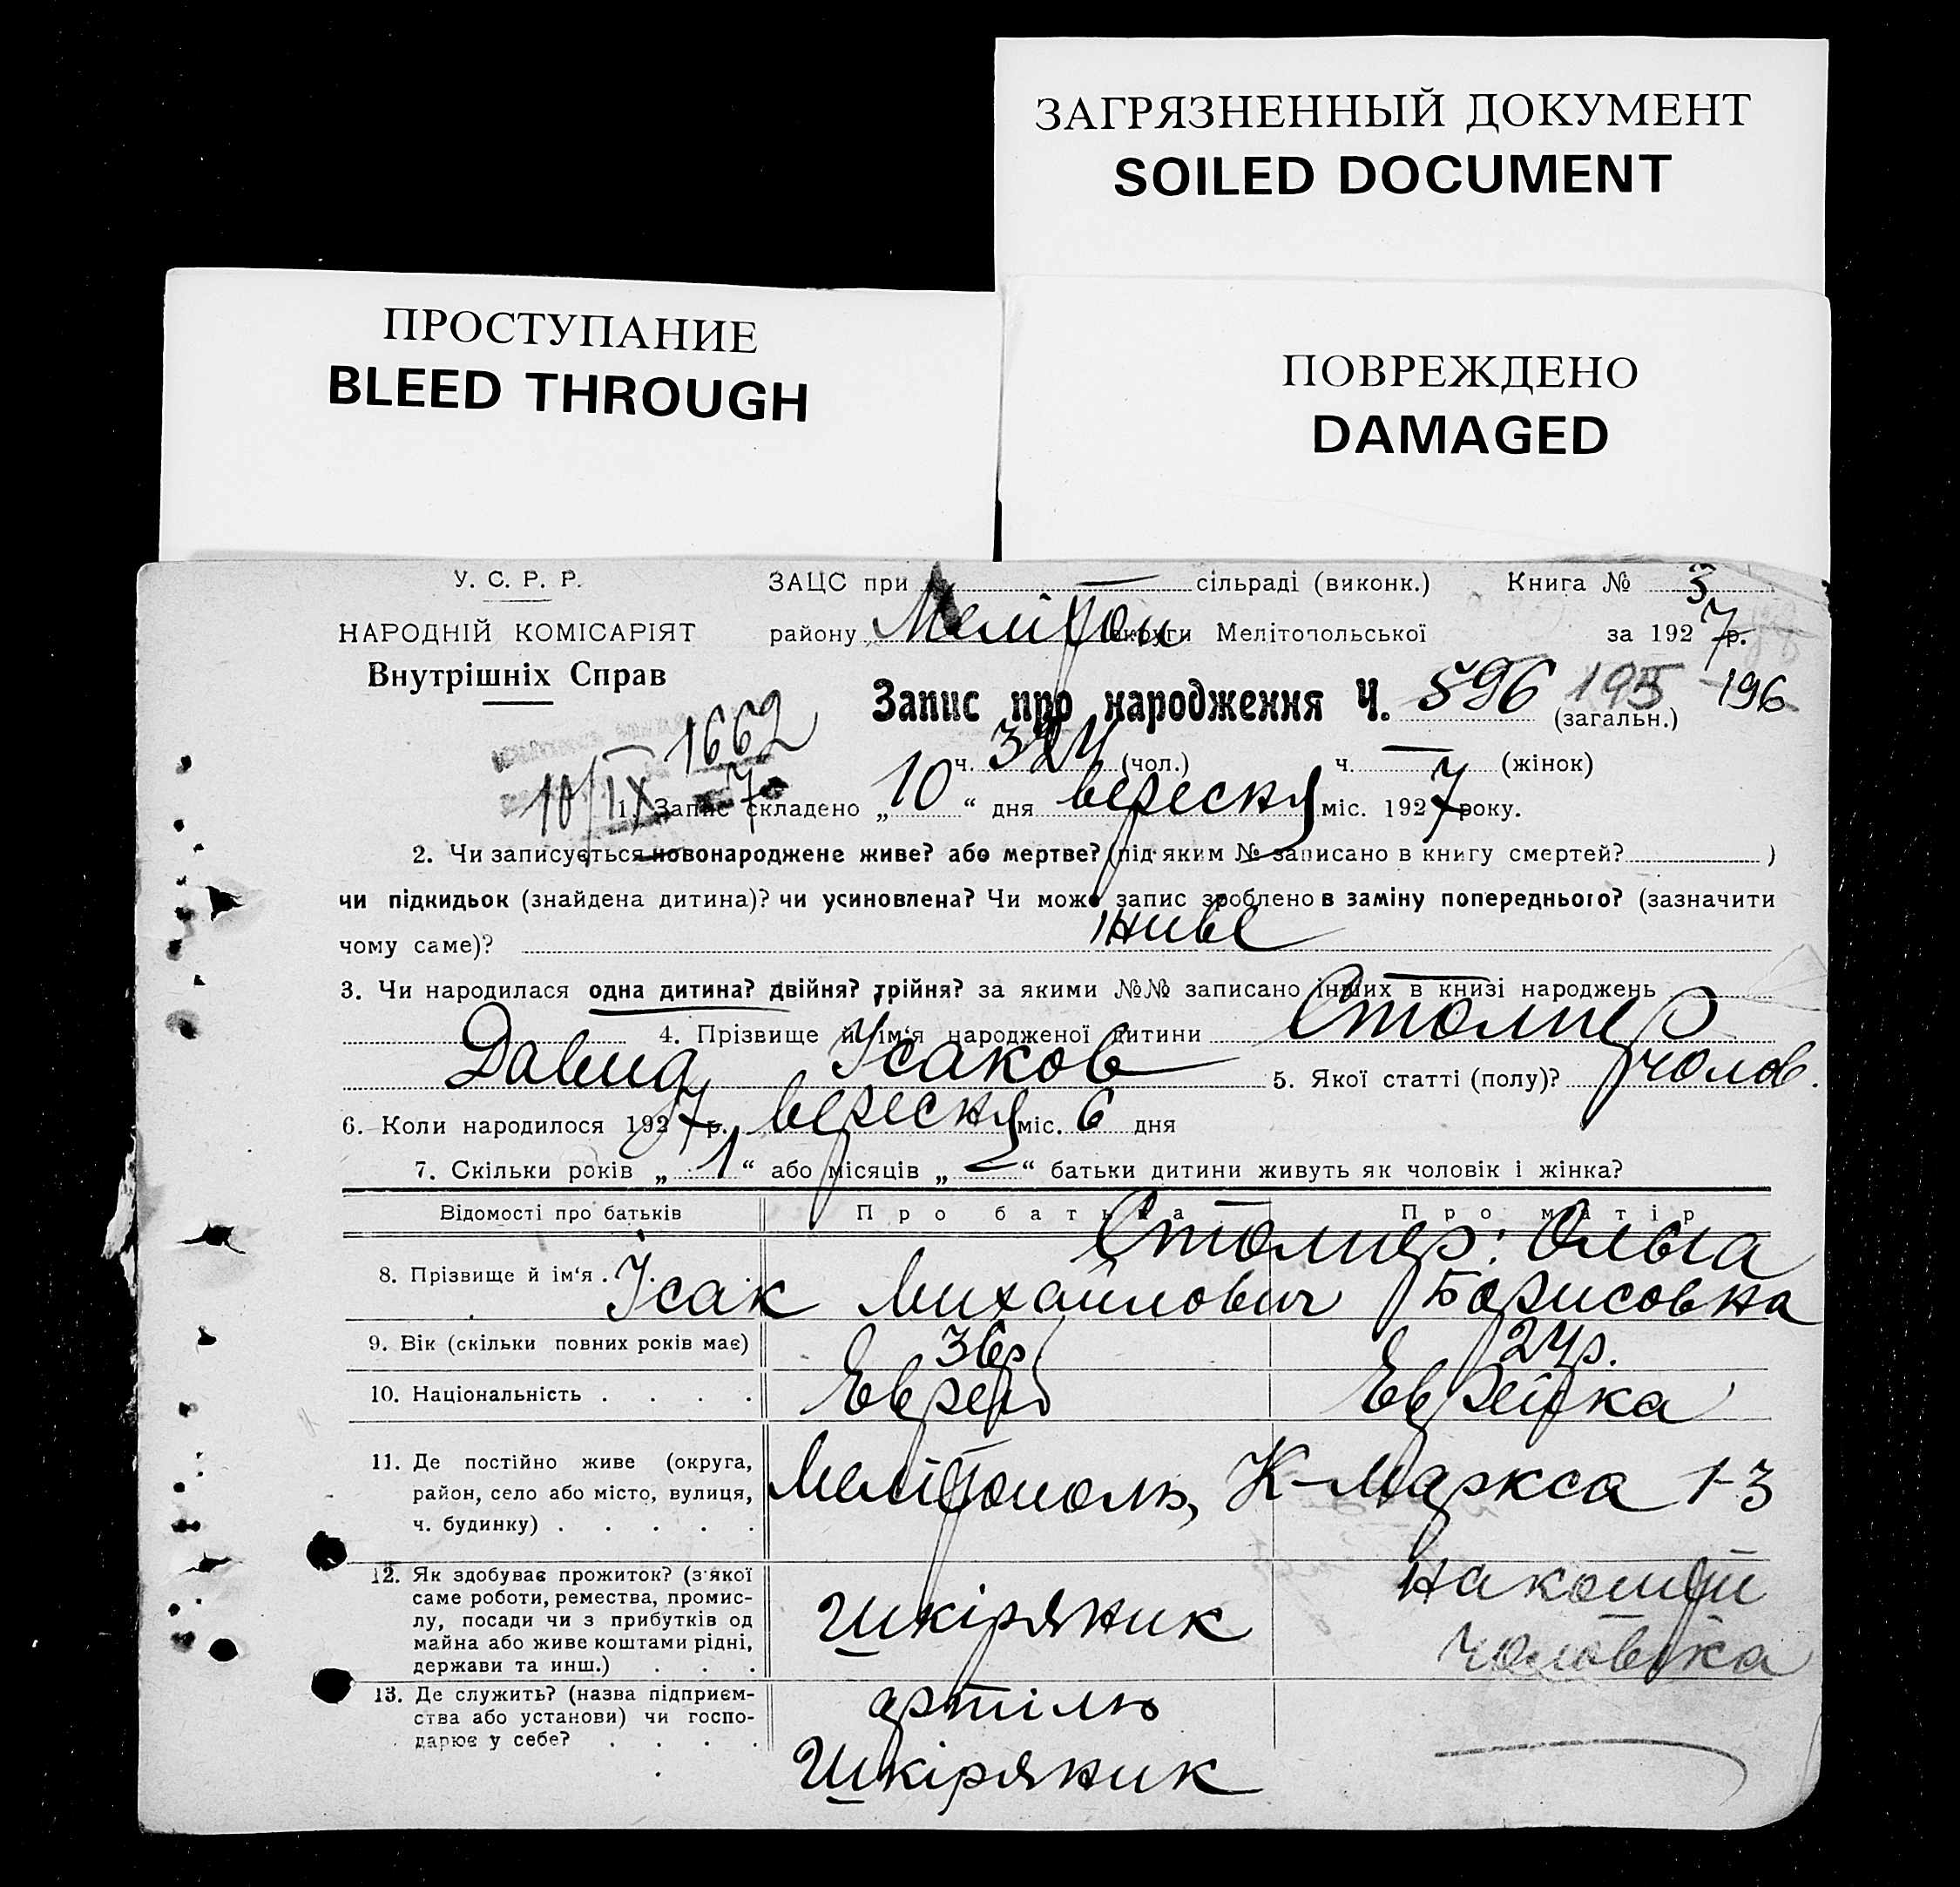 ЗАГРЯЗНЕННЫЙ ДОКУМЕНТ
SOILED DOCUMENT
ПРОСТУПАНИЕ
BLEED THROUGH
ПОВРЕЖДЕНО
DAMAGED
У. С. Р. Р.
НАРОДНІЙ КОМІСАРІЯТ
Внутрішніх Справ
ЗАЦС при — сільраді (виконк.) Книга № 3
району Мелітоп округи Мелітопольської за 1927 р.
Запис про народження Ч. 596 195 196
(загальн.)
1662
ч. 324 (чол.) ч. — (жінок)
10/IX 7
1. Запис складено „10“ дня вересня міс. 1927 року.
2. Чи записується новонароджене живе? або мертве? (під яким № записано в книгу смертей? )
чи підкидьок (знайдена дитина)? чи усиновлена? Чи може запис зроблено в заміну попереднього? (зазначити
чому саме)? живе
3. Чи народилася одна дитина? двійня? трійня? за якими №№ записано інших в книзі народжень
4. Прізвище й ім‘я народженої дитини Столпер
Давид Ісаков 5. Якої статті (полу)? чолов.
6. Коли народилося 1927 р. вересня міс. 6 дня
7. Скільки років „1“ або місяців „—“ батьки дитини живуть як чоловік і жінка?
Відомості про батьків Про батька Про матір
8. Прізвище й ім‘я . Столпер: Ольга
Ісак Михайлович Борисовна
9. Вік (скільки повних років має) 36р. 24р.
10. Національність . . . . Еврей Еврейка
11. Де постійно живе (округа,
район, село або місто, вулиця,
ч. будинку) . . . . .
Мелітополь, К-Маркса 1-3
12. Як здобуває прожиток? (з'якої
саме роботи, ремества, промис-
лу, посади чи з прибутків од
майна або живе коштами рідні,
держави та инш.) . . .
Шкіряник
на кошти
чоловіка
13. Де служить? (назва підприєм-
ства або установи) чи госпо-
дарює у себе? . . . .
артіль
Шкіряник